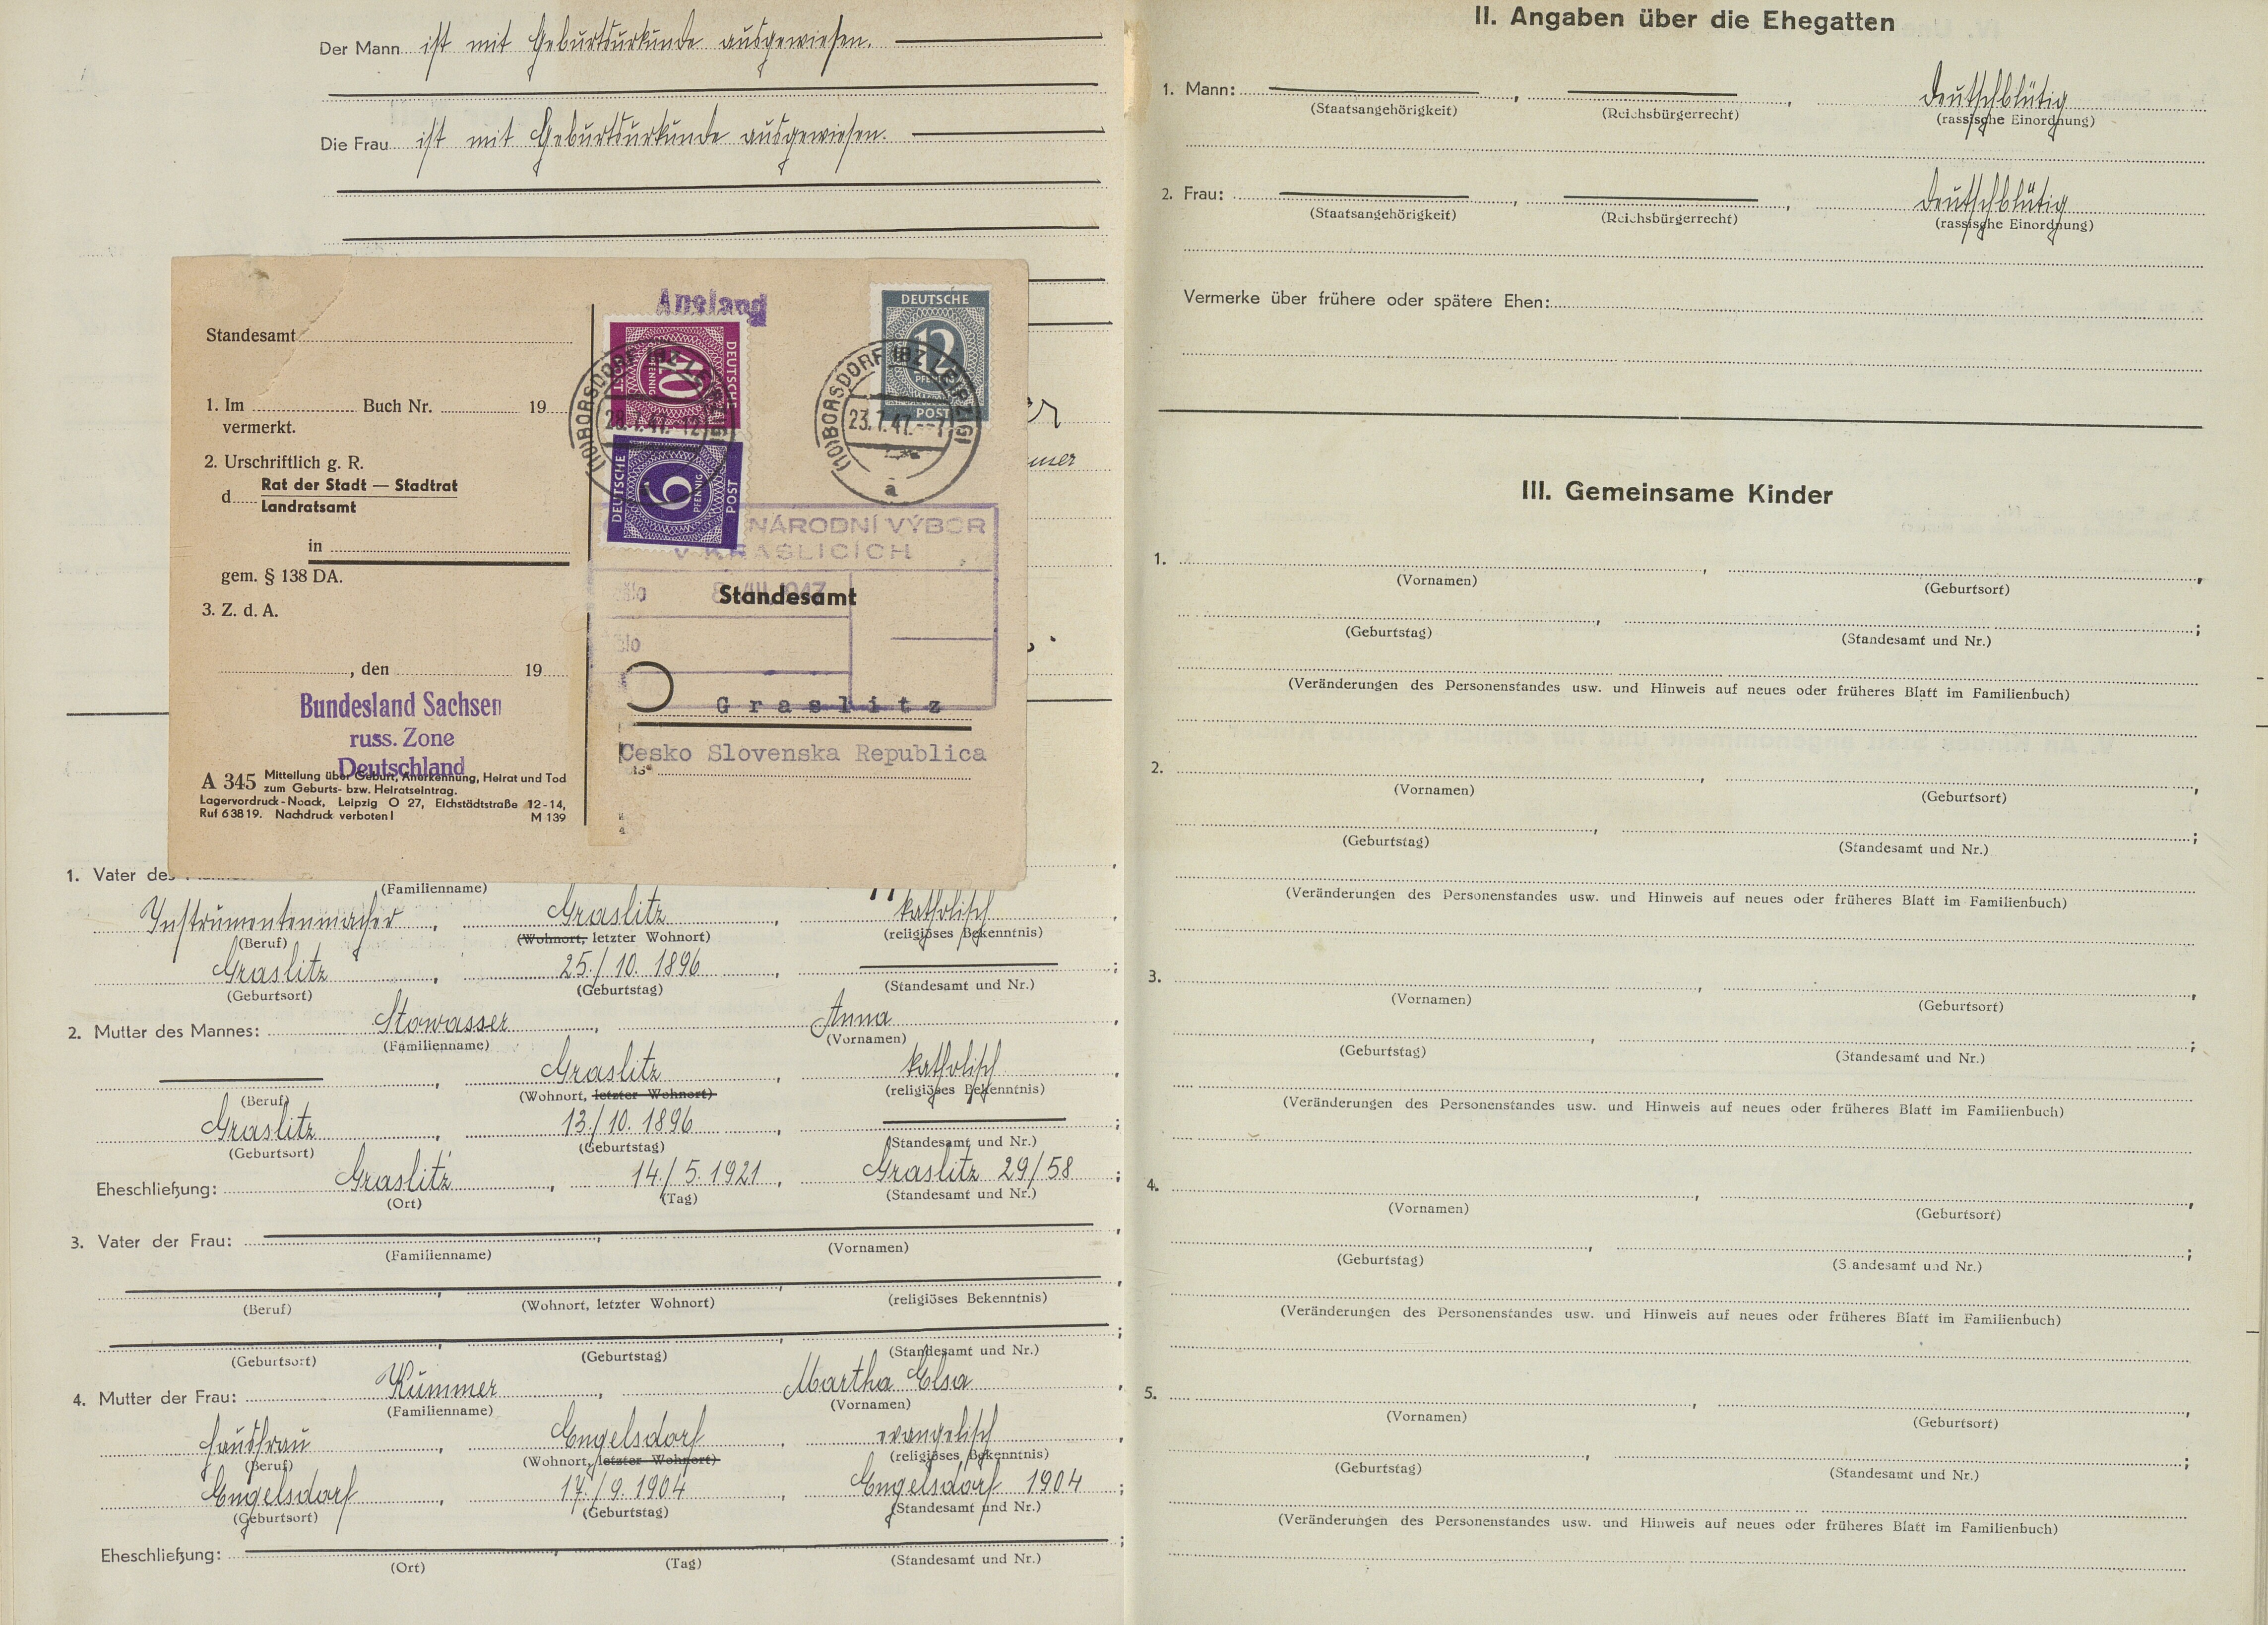 Der Mann ist mit Geburtsurkunde ausgewiesen.
Die Frau ist mit Geburtsurkunde ausgewiesen.
Ausland
DEUTSCHE POST
10
PFENNIG
DEUTSCHE POST
6
PFENNIG
DEUTSCHE
12
PFENNIG
POST
(10) BORSDORF (BZ LEIPZIG)
(10) BORSDORF (BZ LEIPZIG)
23.7.47
a
Standesamt
1. Im Buch Nr. 19
vermerkt.
2. Urschriftlich g. R.
d Rat der Stadt — Stadtrat
Landratsamt
in
gem. § 138 DA.
3. Z. d. A.
, den 19
Bundesland Sachsen
russ. Zone
Deutschland
A 345 Mitteilung über Geburt, Anerkennung, Heirat und Tod
zum Geburts- bzw. Heiratseintrag.
Lagervordruck-Noack, Leipzig O 27, Eichstädtstraße 12-14,
Ruf 63819. Nachdruck verboten! M 139
NÁRODNÍ VÝBOR
V KRASLICÍCH
VIII. 1947
Standesamt
Graslitz
Cesko Slovenska Republica
1. Vater des
(Familienname)
Instrumentenmacher, Graslitz, katholisch,
(Beruf) (Wohnort, letzter Wohnort) (religiöses Bekenntnis)
Graslitz, 25./10. 1896, ;
(Geburtsort) (Geburtstag) (Standesamt und Nr.)
2. Mutter des Mannes: Stowasser, Anna,
(Familienname) (Vornamen)
, Graslitz, katholisch,
(Beruf) (Wohnort, letzter Wohnort) (religiöses Bekenntnis)
Graslitz, 13./10. 1896, ;
(Geburtsort) (Geburtstag) (Standesamt und Nr.)
Eheschließung: Graslitz, 14./5. 1921, Graslitz 29/58;
(Ort) (Tag) (Standesamt und Nr.)
3. Vater der Frau: , ,
(Familienname) (Vornamen)
(Beruf) (Wohnort, letzter Wohnort) (religiöses Bekenntnis)
(Geburtsort) (Geburtstag) (Standesamt und Nr.)
4. Mutter der Frau: Kummer, Martha Elsa,
(Familienname) (Vornamen)
Hausfrau, Engelsdorf, evangelisch,
(Beruf) (Wohnort, letzter Wohnort) (religiöses Bekenntnis)
Engelsdorf, 17./9. 1904, Engelsdorf 1904;
(Geburtsort) (Geburtstag) (Standesamt und Nr.)
Eheschließung: , , ;
(Ort) (Tag) (Standesamt und Nr.)
II. Angaben über die Ehegatten
1. Mann: , , deutschblütig
(Staatsangehörigkeit) (Reichsbürgerrecht) (rassische Einordnung)
2. Frau: , , deutschblütig
(Staatsangehörigkeit) (Reichsbürgerrecht) (rassische Einordnung)
Vermerke über frühere oder spätere Ehen:
III. Gemeinsame Kinder
1. , ,
(Vornamen) (Geburtsort)
(Geburtstag) (Standesamt und Nr.)
(Veränderungen des Personenstandes usw. und Hinweis auf neues oder früheres Blatt im Familienbuch)
2. , ,
(Vornamen) (Geburtsort)
(Geburtstag) (Standesamt und Nr.)
(Veränderungen des Personenstandes usw. und Hinweis auf neues oder früheres Blatt im Familienbuch)
3. , ,
(Vornamen) (Geburtsort)
(Geburtstag) (Standesamt und Nr.)
(Veränderungen des Personenstandes usw. und Hinweis auf neues oder früheres Blatt im Familienbuch)
4. , ,
(Vornamen) (Geburtsort)
(Geburtstag) (Standesamt und Nr.)
(Veränderungen des Personenstandes usw. und Hinweis auf neues oder früheres Blatt im Familienbuch)
5. , ,
(Vornamen) (Geburtsort)
(Geburtstag) (Standesamt und Nr.)
(Veränderungen des Personenstandes usw. und Hinweis auf neues oder früheres Blatt im Familienbuch)